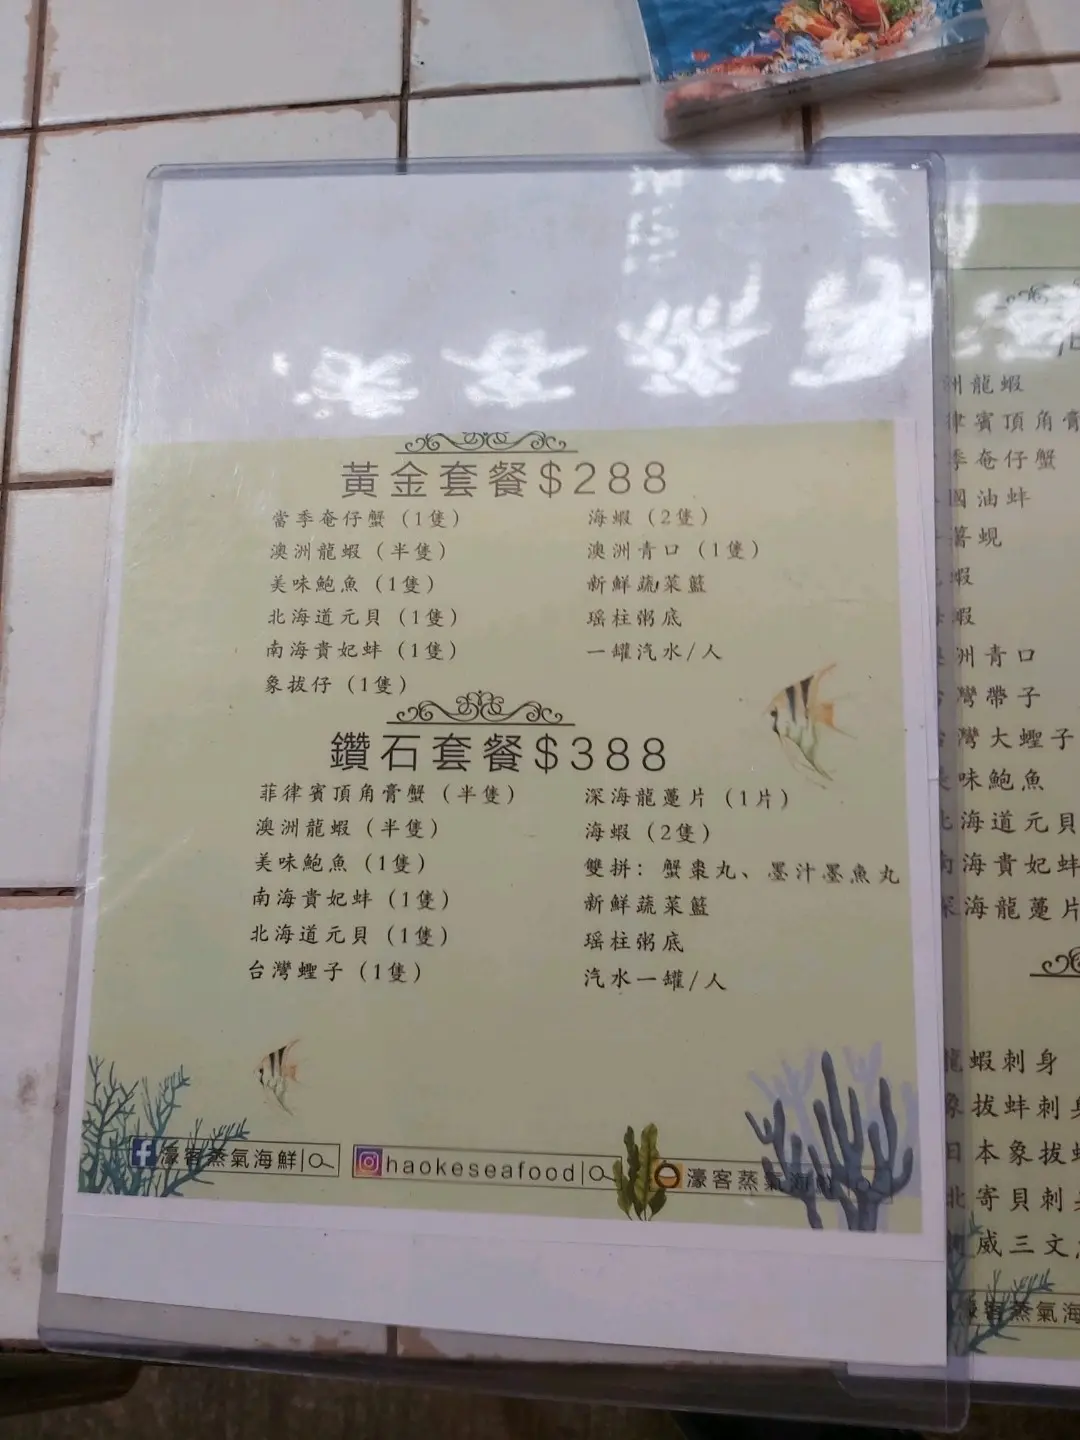 黃金套餐$288
當季奄仔蟹（1隻）
澳洲龍蝦（半隻）
美味鮑魚（1隻）
北海道元貝（1隻）
南海貴妃蚌（1隻）
象拔仔（1隻）
海蝦（2隻）
澳洲青口（1隻）
新鮮蔬菜籃
瑶柱粥底
一罐汽水/人
鑽石套餐$388
菲律賓頂角膏蟹（半隻）
澳洲龍蝦（半隻）
美味鮑魚（1隻）
南海貴妃蚌（1隻）
北海道元貝（1隻）
台灣蟶子（1隻）
深海龍躉片（1片）
海蝦（2隻）
雙拼：蟹棗丸、墨汁墨魚丸
新鮮蔬菜籃
瑶柱粥底
汽水一罐/人
濠客蒸氣海鮮
haokeseafood
濠客蒸氣海鮮
洲龍蝦
律賓頂角膏
季奄仔蟹
國油蚌
薯蜆
蝦
蝦
洲青口
灣帶子
灣大蟶子
味鮑魚
海道元貝
海貴妃蚌
海龍躉片
龍蝦刺身
象拔蚌刺身
日本象拔蚌
北寄貝刺身
威三文
濠客蒸氣海